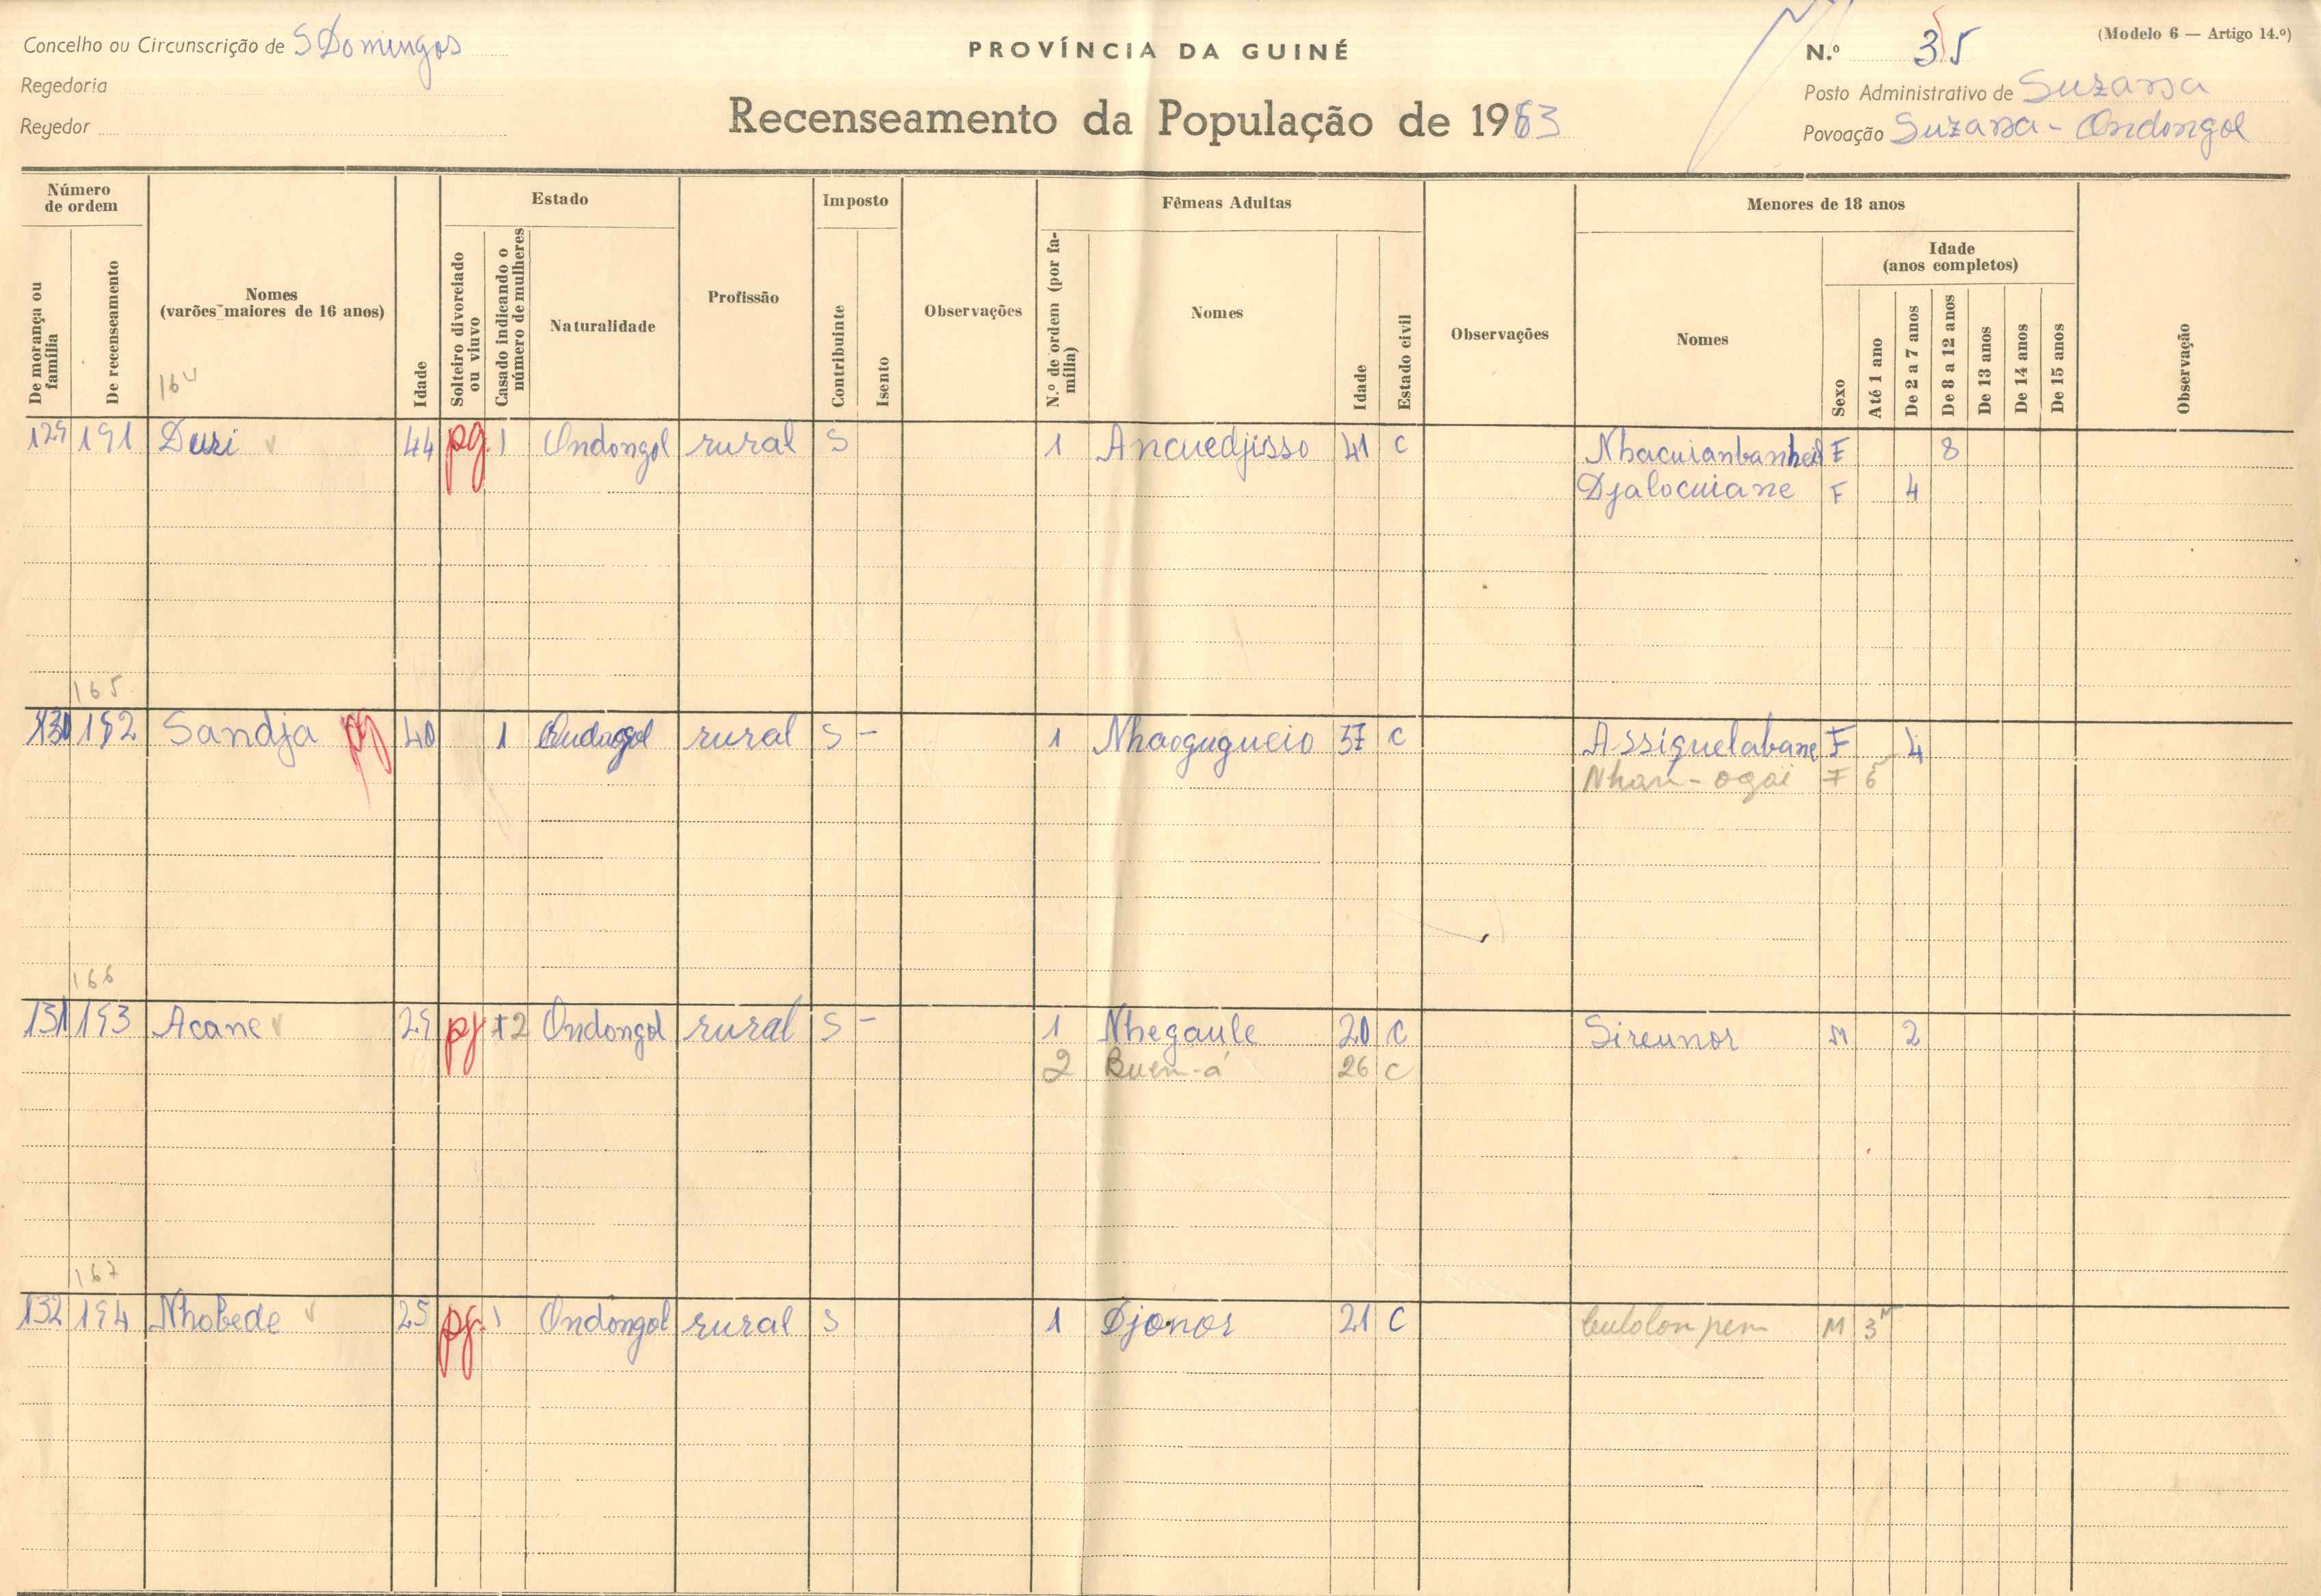 Concelho ou Circunscrição de S Domingos
Regedoria
Regedor
PROVÍNCIA DA GUINÉ
Recenseamento da População de 1963
(Modelo 6 — Artigo 14.º)
N.º 35
Posto Administrativo de Suzana
Povoação Suzana - Ondongol
Número de ordem
De morança ou família
De recenseamento
Nomes
(varões maiores de 16 anos)
164
Idade
Estado
Solteiro divorciado ou viuvo
Casado indicando o número de mulheres
Naturalidade
Profissão
Imposto
Contribuinte
Isento
Observações
Fêmeas Adultas
N.º de ordem (por família)
Nomes
Idade
Estado civil
Observações
Menores de 18 anos
Nomes
Sexo
Idade
(anos completos)
Até 1 ano
De 2 a 7 anos
De 8 a 12 anos
De 13 anos
De 14 anos
De 15 anos
Observação
129 191 Duri 44 pg. 1 Ondongol rural S 1 Ancuedjisso 41 C Nhacuianbanhed F 8
Djalocuiane F 4
165
130 192 Sandja pg 40 1 rural S - 1 Nhaogugueio 37 C Assiquelabane F 4
Nhan-ogai F 6
166
131 193 Acane 29 pg 2 Ondongol rural S - 1 Nhegaule 20 C Sireunor M 2
2 Buen-a 26 C
167
132 194 Nhobede 25 pg. 1 Ondongol rural S 1 Djonor 21 C M 3